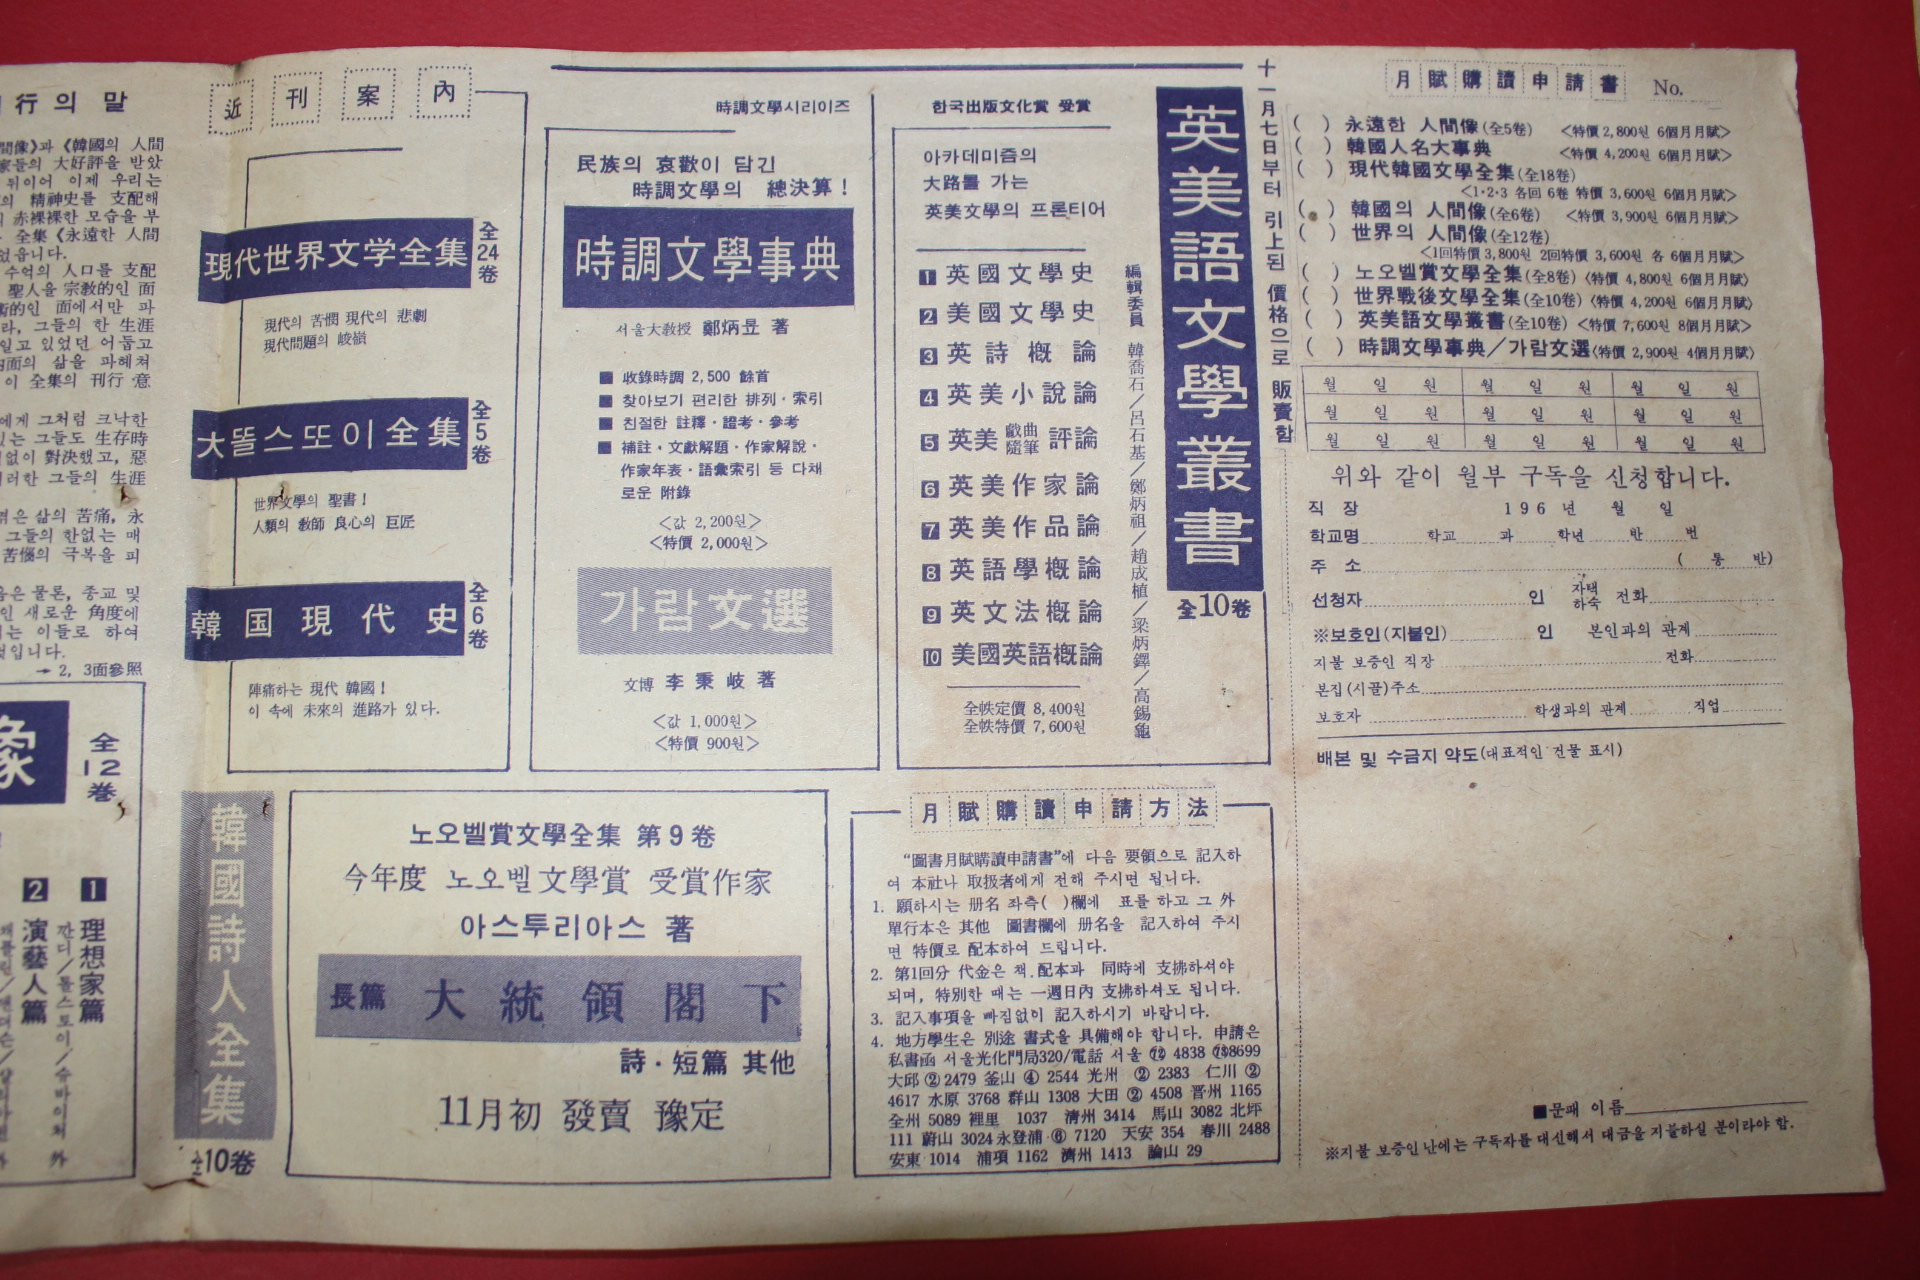 行의 말
間像》과 《韓國의 人間
家들의 大好評을 받았
뒤이어 이제 우리는
의 精神史를 支配해
赤裸裸한 모습을 부
全集《永遠한 人間
었읍니다.
수억의 人口를 支配
聖人을 宗敎的인 面
術的인 面에서만 파
라, 그들의 한 生涯
일고 있었던 어둡고
面의 삶을 파헤쳐
이 全集의 刊行 意
에게 그처럼 크낙한
있는 그들도 生存時
없이 對決했고, 惡
러한 그들의 生涯
겪은 삶의 苦痛, 永
그들의 한없는 매
苦惱의 극복을 피
음은 물론, 종교 및
인 새로운 角度에
는 이들로 하여
것입니다.
→ 2, 3面參照
象
全12卷
1 理想家篇
깐디/톨스토이/슈바이처 外
2 演藝人篇
近刊案內
現代世界文学全集
全24卷
現代의 苦悶 現代의 悲劇
現代問題의 峻嶺
大똘스또이全集
全5卷
世界文學의 聖書!
人類의 敎師 良心의 巨匠
韓国現代史
全6卷
陣痛하는 現代 韓國!
이 속에 未來의 進路가 있다.
韓國詩人全集
全10卷
時調文學시리이즈
民族의 哀歡이 담긴
時調文學의 總決算!
時調文學事典
서울大敎授 鄭炳昱 著
■ 收錄時調 2,500 餘首
■ 찾아보기 편리한 排列·索引
■ 친절한 註釋·證考·參考
■ 補註·文獻解題·作家解說·
作家年表·語彙索引 등 다채
로운 附錄
<값 2,200원>
<特價 2,000원>
가람文選
文博 李秉岐 著
<값 1,000원>
<特價 900원>
한국出版文化賞 受賞
아카데미즘의
大路를 가는
英美文學의 프론티어
英美語文學叢書
全10卷
1 英國文學史
2 美國文學史
3 英詩槪論
4 英美小說論
5 英美 戱曲 隨筆 評論
6 英美作家論
7 英美作品論
8 英語學槪論
9 英文法槪論
10 美國英語槪論
編輯委員 韓喬石/呂石基/鄭炳祖/趙成植/梁炳鐸/高錫龜
全帙定價 8,400원
全帙特價 7,600원
十一月七日부터 引上된 價格으로 販賣함
노오벨賞文學全集 第9卷
今年度 노오벨文學賞 受賞作家
아스투리아스 著
長篇 大統領閣下
詩·短篇 其他
11月初 發賣 豫定
月賦購讀申請方法
“圖書月賦購讀申請書”에 다음 要領으로 記入하
여 本社나 取扱者에게 전해 주시면 됩니다.
1. 願하시는 册名 좌측( )欄에 표를 하고 그 外
單行本은 其他 圖書欄에 册名을 記入하여 주시
면 特價로 配本하여 드립니다.
2. 第1回分 代金은 책.配本과 同時에 支拂하셔야
되며, 特別한 때는 一週日內 支拂하셔도 됩니다.
3. 記入事項을 빠짐없이 記入하시기 바랍니다.
4. 地方學生은 別途 書式을 具備해야 합니다. 申請은
私書函 서울光化門局320/電話 서울 ⑫ 4838 ⑬8699
大邱 ② 2479 釜山 ④ 2544 光州 ② 2383 仁川 ②
4617 水原 3768 群山 1308 大田 ② 4508 晋州 1165
全州 5089 裡里 1037 淸州 3414 馬山 3082 北坪
111 蔚山 3024 永登浦 ⑥ 7120 天安 354 春川 2488
安東 1014 浦項 1162 濟州 1413 論山 29
月賦購讀申請書 No.
( ) 永遠한 人間像(全5卷) <特價 2,800원 6個月月賦>
( ) 韓國人名大事典 <特價 4,200원 6個月月賦>
( ) 現代韓國文學全集(全18卷)
<1·2·3 各回 6卷 特價 3,600원 6個月月賦>
( ) 韓國의 人間像(全6卷) <特價 3,900원 6個月月賦>
( ) 世界의 人間像(全12卷)
<1回特價 3,800원 2回特價 3,600원 各 6個月月賦>
( ) 노오벨賞文學全集(全8卷) <特價 4,800원 6個月月賦>
( ) 世界戰後文學全集(全10卷) <特價 4,200원 6個月月賦>
( ) 英美語文學叢書(全10卷) <特價 7,600원 8個月月賦>
( ) 時調文學事典/가람文選<特價 2,900원 4個月月賦>
월 일 원 월 일 원 월 일 원
월 일 원 월 일 원 월 일 원
월 일 원 월 일 원 월 일 원
위와 같이 월부 구독을 신청합니다.
直 장 196 년 월 일
학교명 학교 과 학년 반 번
주 소 ( 통 반)
선청자 인 자택 하숙 전화
※보호인(지불인) 인 본인과의 관계
지불 보증인 직장 전화
본집(시골)주소
보호자 학생과의 관계 직업
배본 및 수금지 약도(대표적인 건물 표시)
■문패 이름
※지불 보증인 난에는 구독자를 대신해서 대금을 지불하실 분이라야 함.